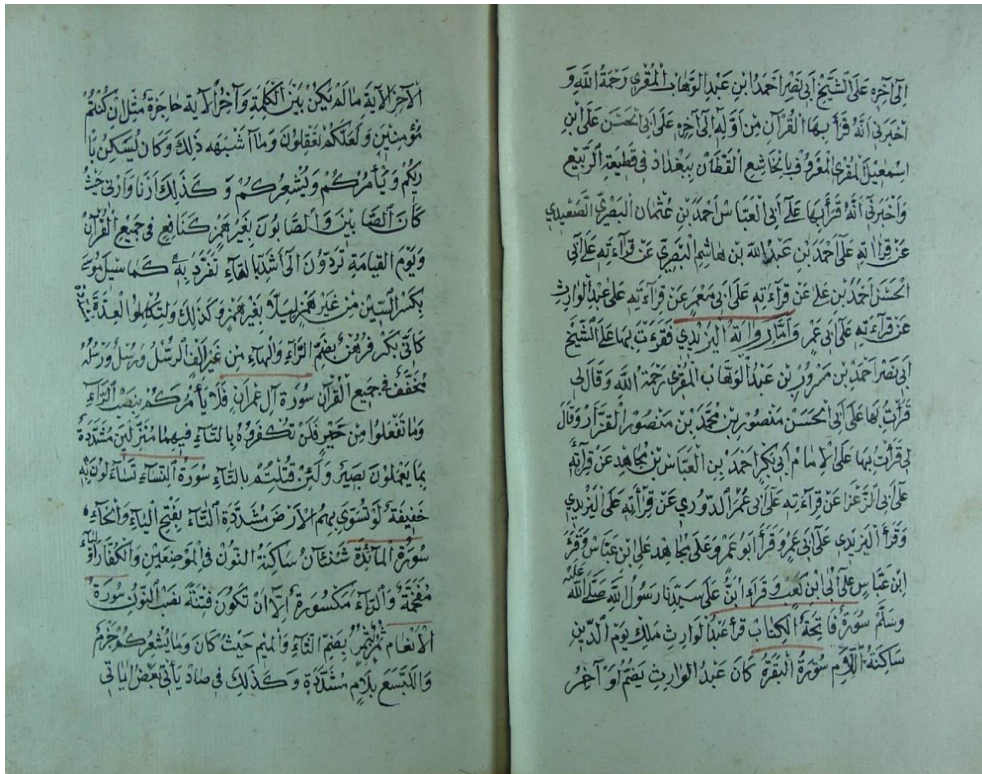 الى آخره على الشيخ أبي نصر احمد ابن عبد الوهاب المقري رحمة الله و
اخبرني انه قرأ بها القرآن من اوله الى آخره على ابي الحسن على ابن
اسمعيل المقري المعروف بالخاشع القطان ببغداد في قطيعة الربيع
واخبرني انه قرأ بها على أبي العباس احمد بن عثمان البصري الصعيدي
عن قراءته على احمد بن عبد الله بن هاشم البصري عن قراءته على أبي
الحسن احمد بن على عن قراءته على ابي معمر عن قراءته على عبد الوارث
عن قراءته على ابي عمر وأما رواية اليزيدي فقرءت بها على الشيخ
ابي نصر احمد بن مسرور بن عبد الوهاب المقري رحمة الله وقال لى
قرأت بها على ابى الحسن منصور بن محمد بن منصور القزاز وقال
لى قرأت بها على الامام ابي بكر احمد بن العباس بن مجاهد عن قراته
على ابي الزعرا عن قراءته على ابي عمر الدوري عن قرأته على اليزيدي
وقرأ اليزيدي على ابي عمرو وقرأ ابو عمرو على مجاهد على ابن عباس وقرء
ابن عباس على ابى ابن كعب وقراء ابىّ على سيدنا رسول الله صلى الله عليه
وسلم سورة فاتحة الكتاب قرأ عبد الوارث ملك يوم الدين
ساكنة اللام سورة البقرة كان عبد الوارث يضم او آخر
الآخر الآية ما لم يكن بين الكلمة وآخر الآية حاجزة مثل ان كنتم
مؤمنين ولعلكم تعقلون وما اشبهه ذلك وكان يسكن با
ريكم ويأمركم ويشعركم و كذلك ارنا وارنى حيث
كان الصابين والصابون بغير همز كنافع فى جميع القرآن
ويوم القيامة تردون الى اشد بالتاء تفرد به كما سيل موسى
بكسر السين من غير همز ليلا بغير همز وكذلك ولتكملوا العدة
كابي بكر فرهن بضم الراء والهاء من غير الف الرسل ورسل ورسله
مخفف فى جميع القرآن سورة آل عمران فلا يأمركم بنصب الراء
وما تفعلوا من خير فلن تكفروه بالتاء فيهما منزلين مشددة
بما يعملون بصير ولئن قتلتم بالتاء سورة النساء تساءلون به
خفيفة لو تسوى بهم الارض مشددة التاء بفتح الياء والخاء
سورة المائدة شنئان ساكنة النون فى الموضعين والكفار الراء
مفخمة والتاء مكسورة الا ان تكون فتنة نصب النون سورة
الانعام ثمر بضم الثاء والميم حيث كان وما يشعركم جزم
والليسع بلام مشددة وكذلك فى صاد يأتى بعض اياتى